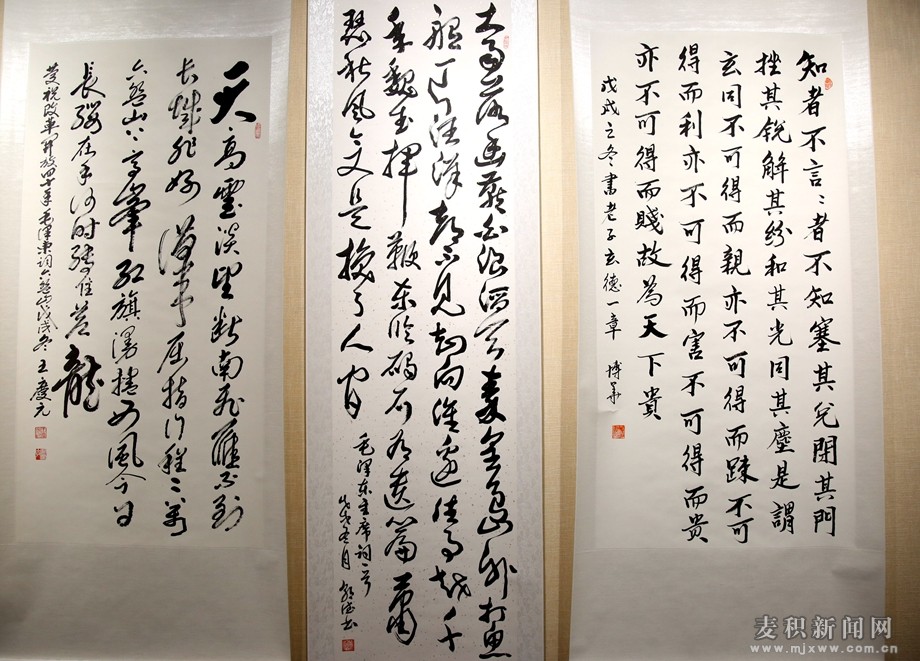 知者不言〻者不知塞其兌閉其門
挫其銳解其紛和其光同其塵是謂
玄同不可得而親亦不可得而踈不可
得而利亦不可得而害不可得而贵
亦不可得而賤故為天下貴
戊戌之冬書老子玄德一章 博华
大雨落幽燕白浪滔天秦皇島外打魚
船一片汪洋都不見知向誰邊往事越千
年魏武揮鞭東临碣石有遺篇蕭
瑟秋風今又是換了人间
毛泽东主席词一首
戊戌冬月
天高雲淡望断南飛雁不到
长城非好漢屈指行程二万
六盤山上高峯红旗漫捲西風今日
長纓在手何时縛住蒼龍
慶祝改革開放四十年毛澤東詞六盘山戊戌冬王慶元
麦积新闻网
www.mjxww.com.cn